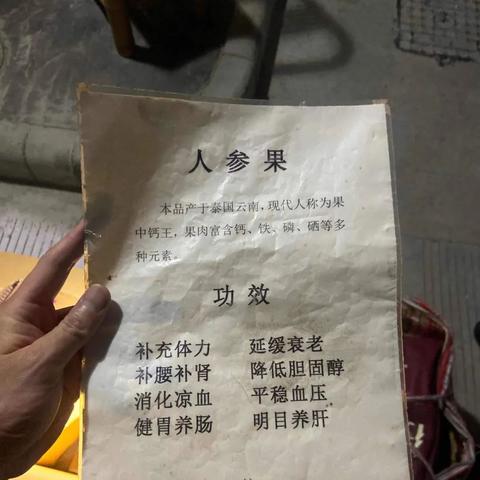 人参果
本品产于泰国云南，现代人称为果
中钙王，果肉富含钙、铁、磷、硒等多
种元素。
功效
补充体力 延缓衰老
补腰补肾 降低胆固醇
消化凉血 平稳血压
健胃养肠 明目养肝